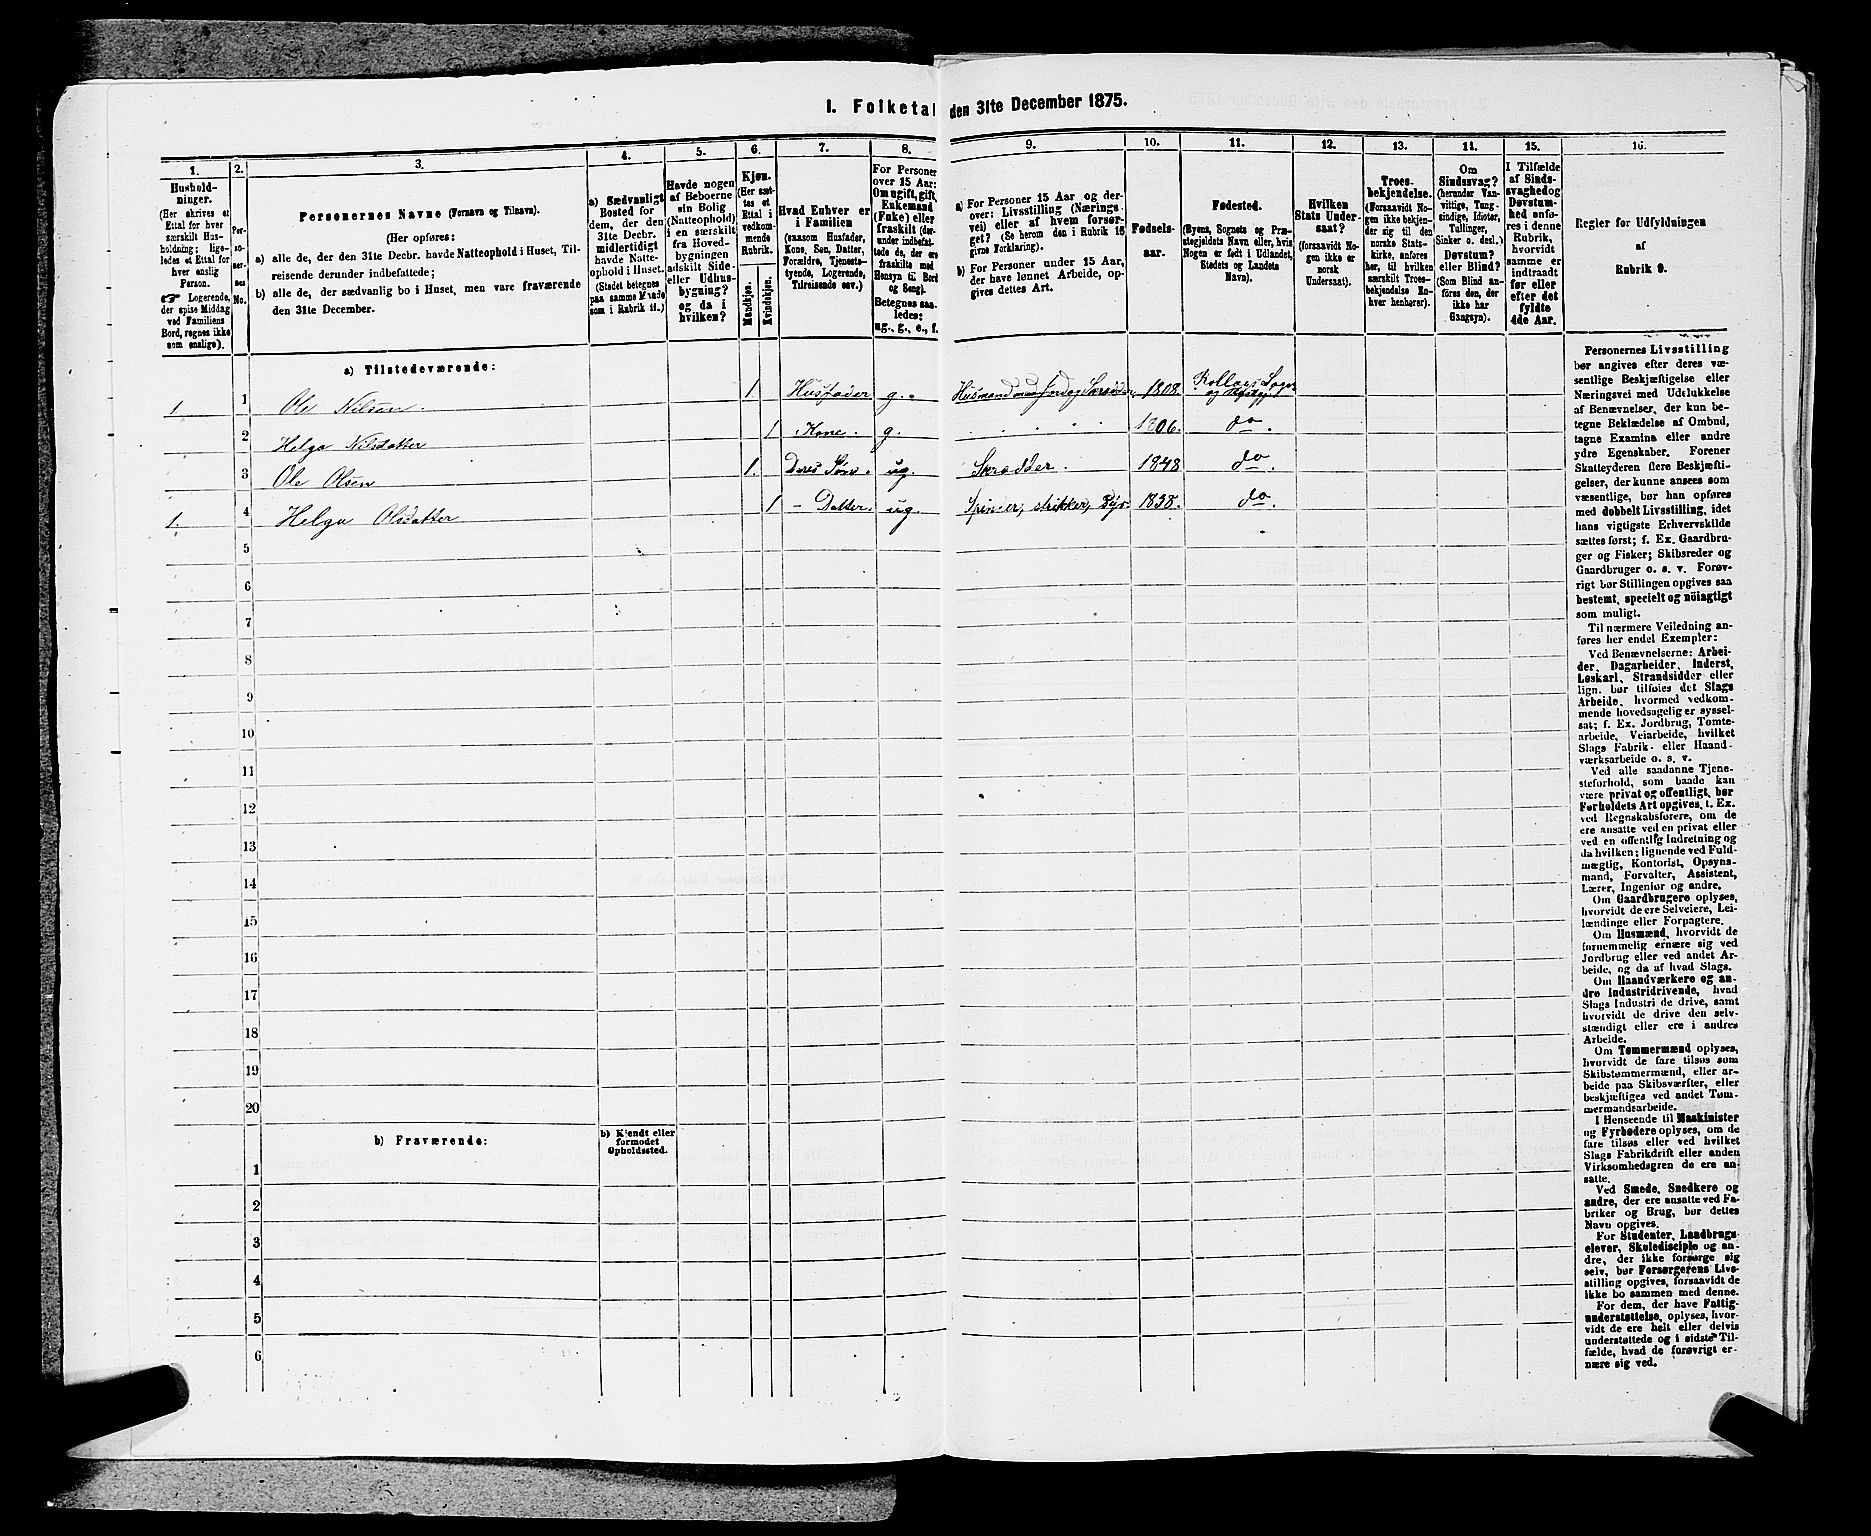 I. Folketal den 31te December 1875.
1.
Hushold-
ninger.
(Her skrives et
Ettal for hver
særskilt Hus-
holdning; lige-
ledes et Ettal for
hver enslig
Person.
Logerende,
der spise Middag
ved Familiens
Bord, regnes ikke
som enslige).
2.
Per-
so-
ner-
nes
No.
3.
Personernes Navne (Fornavn og Tilnavn).
(Her opføres:
a) alle de, der den 31te Decbr. havde Natteophold i Huset, Til-
reisende derunder indbefattede;
b) alle de, der sædvanlig bo i Huset, men vare fraværende
den 31te December.
4.
a) Sædvanligt
Bosted for
dem, der den
31te Decbr.
midlertidigt
havde Natte-
ophold i Huset.
(Stedet betegnes
paa samme Maade
som i Rubrik 11.)
5.
Havde nogen
af Beboerne
sin Bolig
(Natteophold)
i en særskilt
fra Hoved-
bygningen
adskilt Side-
eller Udhus-
bygning?
og da i
hvilken?
6.
Kjøn.
(Her sæt-
tes et
Ettal i
vedkom-
mende
Rubrik.
Mandkjøn.
Kvindekjøn.
7.
Hvad Enhver er
i Familien
(saasom Husfader,
Kone, Søn, Datter,
Forældre, Tjeneste-
tyende, Logerende,
Tilreisende osv.)
8.
For Personer
over 15 Aar:
Om ugift, gift,
Enkemand
(Enke) eller
fraskilt (der-
under indbefat-
tede de, der ere
fraskilte med
Hensyn til Bord
og Seng).
Betegnes saa-
ledes:
ug., g., e., f.
9.
a) For Personer 15 Aar og der-
over: Livsstilling (Nærings-
vei) eller af hvem forsør-
get? (Se herom den i Rubrik 16
givne Forklaring).
b) For Personer under 15 Aar,
der have lønnet Arbeide, op-
gives dettes Art.
10.
Fødsels-
aar.
11.
Fødested.
(Byens, Sognets og Præ-
stegjeldets Navn eller, hvis
Nogen er født i Udlandet,
Stedets og Landets
Navn).
12.
Hvilken
Stats Under-
saat?
(forsaavidt No-
gen ikke er
norsk
Undersaat).
13.
Troes-
bekjendelse.
(Forsaavidt No-
gen ikke bekjen-
der sig til den
norske Stats-
kirke, anføres
her, til hvilken
særskilt Troes-
bekjendelse En-
hver henhører).
14.
Om
Sindssvag?
(herunder Van-
vittige, Tung-
sindige, Idioter,
Tullinger,
Sinker o. desl.)
Døvstum?
eller Blind?
(Som Blind an-
føres den, der
ikke har
Gangsyn).
15.
I Tilfælde
af Sinds-
svaghed og
Døvstum-
hed anfø-
res i denne
Rubrik,
hvorvidt
samme er
indtraadt
før eller
efter det
fyldte
4de Aar.
16.
Regler for Udfyldningen
af
Rubrik 9.
a) Tilstedeværende:
1 1 Ole Nilsen. 1 Husfader g. Husmand med Jord og Skrædder. 1808. Rollags Sogn og
2 Helga Nilsdatter 1 Kone. g. 1806. do.
3 Ole Olsen 1. Deres Søn. ug. Skrædder. 1848 do.
1. 4 Helga Olsdatter 1 - Datter. ug. Spinner, strikker, syr. 1838. do.
5
6
7
8
9
10
11
12
13
14
15
16
17
18
19
20
b) Fraværende:
b) Kjendt eller
formodet
Opholdssted.
1
2
3
4
5
6
Personernes Livsstilling
bør angives efter deres væ-
sentlige Beskjæftigelse eller
Næringsvei med Udelukkelse
af Benævnelser, der kun be-
tegne Beklædelse af Ombud,
tagne Examina eller andre
ydre Egenskaber. Forener
Skatteyderen flere Beskjæfti-
gelser, der kunne ansees som
væsentlige, bør han opføres
med dobbelt Livsstilling, idet
hans vigtigste Erhvervskilde
sættes først; f. Ex. Gaardbru-
ger og Fisker; Skibsreder og
Gaardbruger o. s. v. Forøv-
rigt bør Stillingen opgives saa
bestemt, specielt og nøiagtigt
som muligt.
Til nærmere Veiledning an-
føres her endel Exempler:
Ved Benævnelserne: Arbei-
der, Dagarbeider, Inderst,
Løskarl, Strandsidder eller
lign. bør tilføies det Slags
Arbeide, hvormed vedkom-
mende hovedsagelig er syssel-
sat; f. Ex. Jordbrug, Tomte-
arbeide, Veiarbeide, hvilket
Slags Fabrik- eller Haand-
værksarbeide o. s. v.
Ved alle saadanne Tjene-
steforhold, som baade kan
være privat og offentligt, bør
Forholdets Art opgives, t. Ex.
ved Regnskabsførere, om de
ere ansatte ved en privat eller
ved en offentlig Indretning og
da hvilken; lignende ved Fuld-
mægtig, Kontorist, Opsyns-
mand, Forvalter, Assistent,
Lærer, Ingeniør og andre.
Om Gaardbrugere oplyses,
hvorvidt de ere Selveiere, Lei-
lændinge eller Forpagtere.
Om Husmænd, hvorvidt de
fornemmelig ernære sig ved
Jordbrug eller ved andet Ar-
beide, og da af hvad Slags.
Om Haandværkere og an-
dre Industridrivende, hvad
Slags Industri de drive, samt
hvorvidt de drive den selv-
stændigt eller ere i andres
Arbeide.
Om Tømmermænd oplyses,
hvorvidt de fare tilsøs som
Skibstømmermænd, eller ar-
beide paa Skibsværfter, eller
beskjæftiges ved andet Tøm-
mermandsarbeide.
I Henseende til Maskinister
og Fyrbødere oplyses, om de
fare tilsøs eller ved hvilket
Slags Fabrikdrift eller anden
Virksomhedsgren de ere an-
satte.
Ved Smede, Snedkere og
andre, der ere ansatte ved Fa-
briker og Brug, bør dettes
Navn opgives.
For Studenter, Landbrugs-
elever, Skoledisciple og an-
dre, der ikke forsørge sig
selv, bør Forsørgerens Livs-
stilling opgives, forsaavidt de
ikke bo sammen med denne.
For dem, der have Fattig-
understøttelse, oplyses, hvor-
vidt de ere helt eller delvis
understøttede og i sidste Til-
fælde, hvad de forøvrigt er-
nære sig ved.